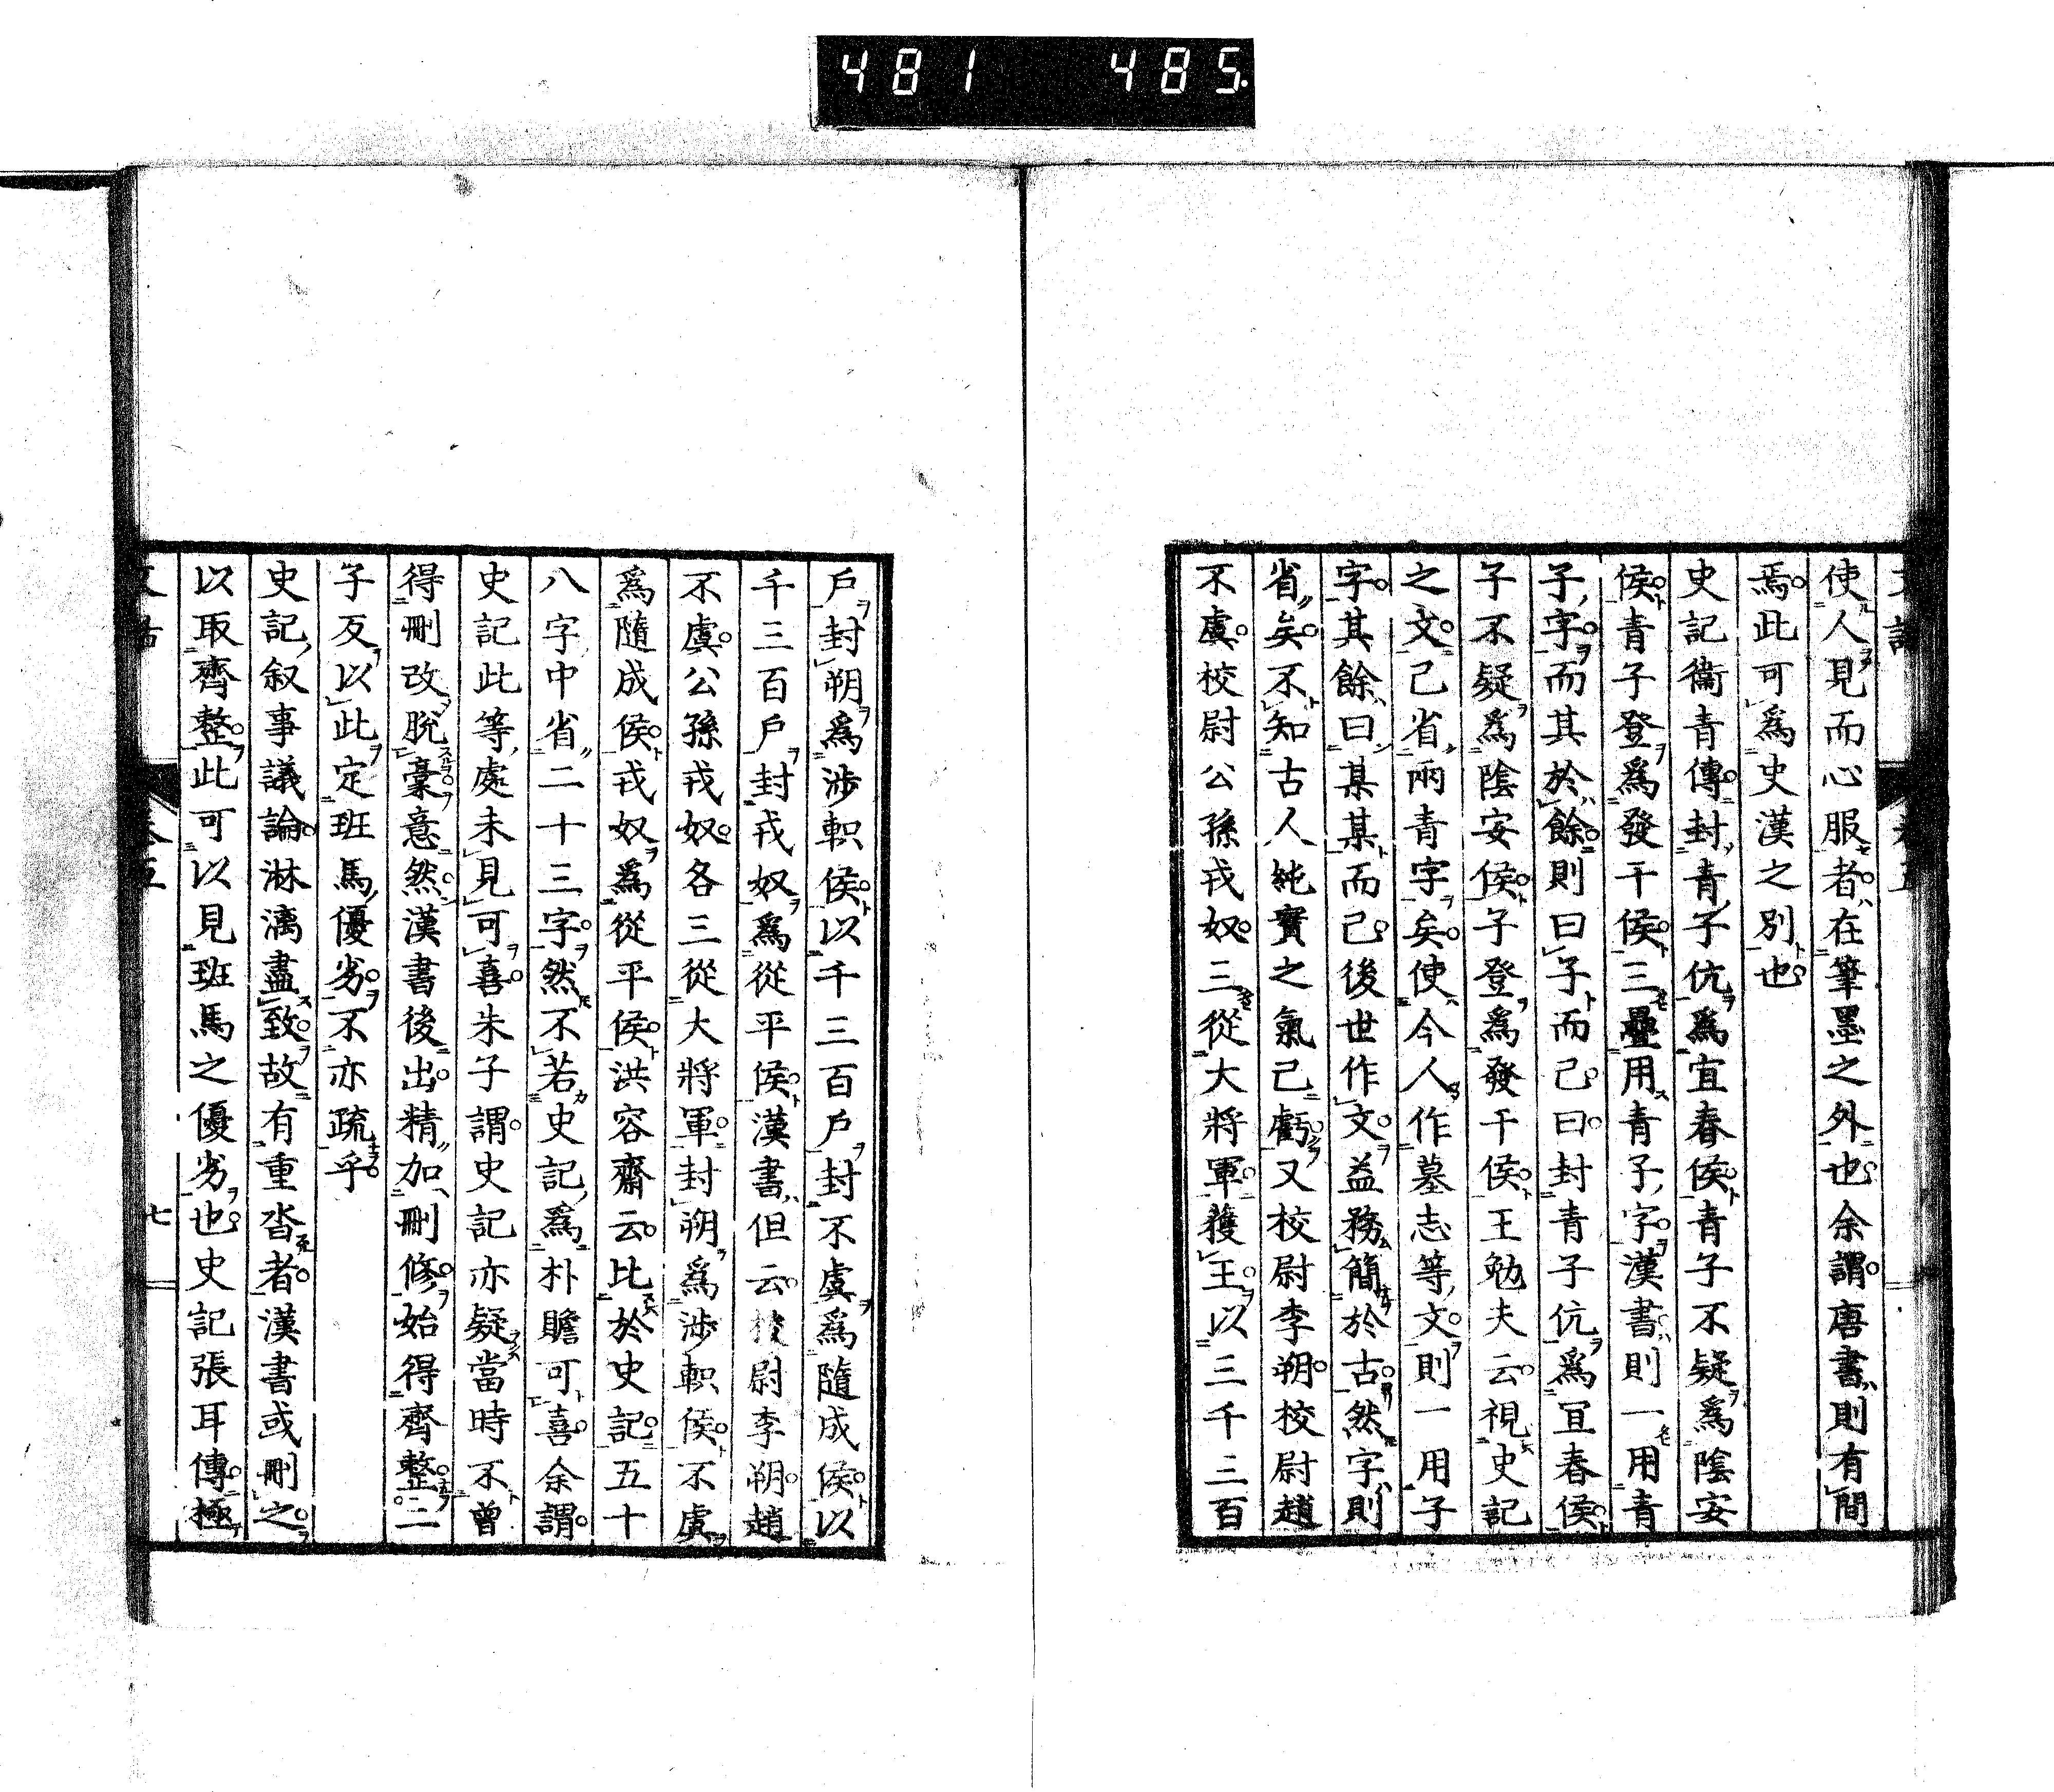 481 485
使人見而心服者在筆墨之外也余謂唐書則有間
焉此可爲史漢之別也
史記衞青傳封青子伉爲宜春侯青子不疑爲陰安
侯青子登爲發干侯三疊用青子字漢書則一用青
子字而其於餘則曰子而已曰封青子伉爲宜春侯
子不疑爲陰安侯子登爲發干侯王勉夫云視史記
之文已省兩青字矣使今人作墓志等文則一用子
字其餘曰某某而已後世作文益務簡於古然字則
省矣不知古人純實之氣已虧又校尉李朔校尉趙
不虞校尉公孫戎奴三從大將軍獲王以三千三百
戶封朔爲渉軹侯以千三百戶封不虞爲隨成侯以
千三百戶封戎奴爲從平侯漢書但云校尉李朔趙
不虞公孫戎奴各三從大將軍封朔爲渉軹侯不虞
爲隨成侯戎奴爲從平侯洪容齋云比於史記五十
八字中省二十三字然不若史記爲朴贍可喜余謂
史記此等處未見可喜朱子謂史記亦疑當時不曾
得刪改脫稾意然漢書後出精加刪修始得齊整二
子反以此定班馬優劣不亦疏乎
史記叙事議論淋漓盡致故有重沓者漢書或刪之
以取齊整此可以見班馬之優劣也史記張耳傳極
七